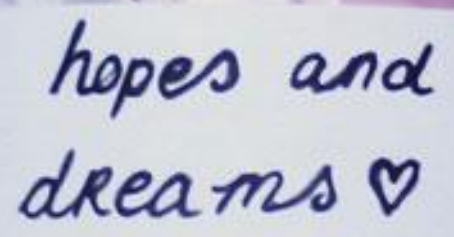 hopes and
dreams♡